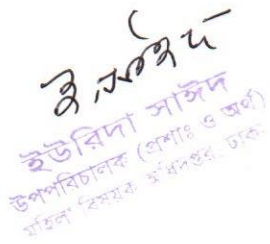 ইউরিদা সাঈদ
উপপরিচালক (প্রশাঃ ও অর্থ)
মহিলা বিষয়ক অধিদপ্তর, ঢাকা